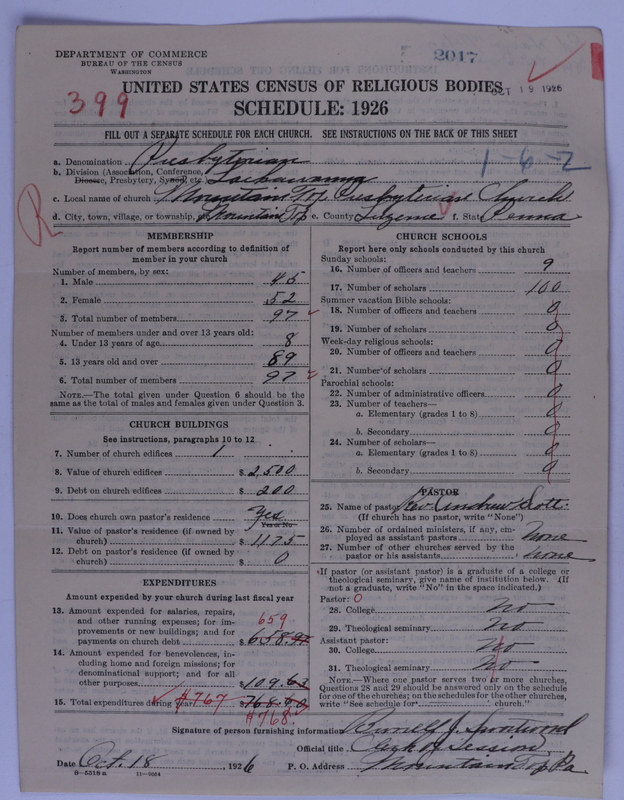 DEPARTMENT OF COMMERCE
BUREAU OF THE CENSUS
WASHINGTON
2017
OCT 19 1926
399
UNITED STATES CENSUS OF RELIGIOUS BODIES
SCHEDULE: 1926
FILL OUT A SEPARATE SCHEDULE FOR EACH CHURCH. SEE INSTRUCTIONS ON THE BACK OF THIS SHEET
a. Denomination Presbyterian
1-6-2
b. Division (Association, Conference, Diocese, Presbytery, Synod, etc.) Lackawanna
c. Local name of church Mountain Top Presbyterian Church
d. City, town, village, or township, Mountain Top e. County Luzerne f. State Penna
R
MEMBERSHIP
Report number of members according to definition of
member in your church
Number of members, by sex:
1. Male 45
2. Female 52
3. Total number of members 97
Number of members under and over 13 years old:
4. Under 13 years of age 8
5. 13 years old and over 89
6. Total number of members 97
NOTE.—The total given under Question 6 should be
same as the total of males and females given under Question 3.
CHURCH BUILDINGS
See instructions, paragraphs 10 to 12
7. Number of church edifices 1
8. Value of church edifices $ 2,500
9. Debt on church edifices $ 200
10. Does church own pastor's residence Yes
Yes or No
11. Value of pastor's residence (if owned by
church) $ 1175
12. Debt on pastor's residence (if owned by
church) $ 0
EXPENDITURES
Amount expended by your church during last fiscal year
13. Amount expended for salaries, repairs,
and other running expenses; for im- 659
provements or new buildings; and for
payments on church debt $ 658.
14. Amount expended for benevolences, in-
cluding home and foreign missions; for
denominational support; and for all
other purposes $ 109.63
15. Total expenditures during year $767 $ 768.60
$768.
CHURCH SCHOOLS
Report here only schools conducted by this church
Sunday schools:
16. Number of officers and teachers 9
17. Number of scholars 100
Summer vacation Bible schools:
18. Number of officers and teachers 0
19. Number of scholars 0
Week-day religious schools:
20. Number of officers and teachers 0
21. Number of scholars 0
Parochial schools:
22. Number of administrative officers 0
23. Number of teachers—
a. Elementary (grades 1 to 8) 0
b. Secondary 0
24. Number of scholars—
a. Elementary (grades 1 to 8) 0
b. Secondary 0
PASTOR
25. Name of pastor Rev. Andrew Scott.
(If church has no pastor, write "None")
26. Number of ordained ministers, if any, em-
ployed as assistant pastors None
27. Number of other churches served by the
pastor or his assistants None
If pastor (or assistant pastor) is a graduate of a college or
theological seminary, give name of institution below. (If
not a graduate, write "No" in the space indicated.)
Pastor: 0
28. College No
29. Theological seminary No
Assistant pastor:
30. College No
31. Theological seminary No
NOTE.—Where one pastor serves two or more churches,
Questions 28 and 29 should be answered only on the schedule
for one of the churches; on the schedules for the other churches,
write "See schedule for church."
Signature of person furnishing information J.
Official title Clerk of Session
Date Oct. 18, 1926 P. O. Address Mountain Top Pa
8-5518 a 11-9024